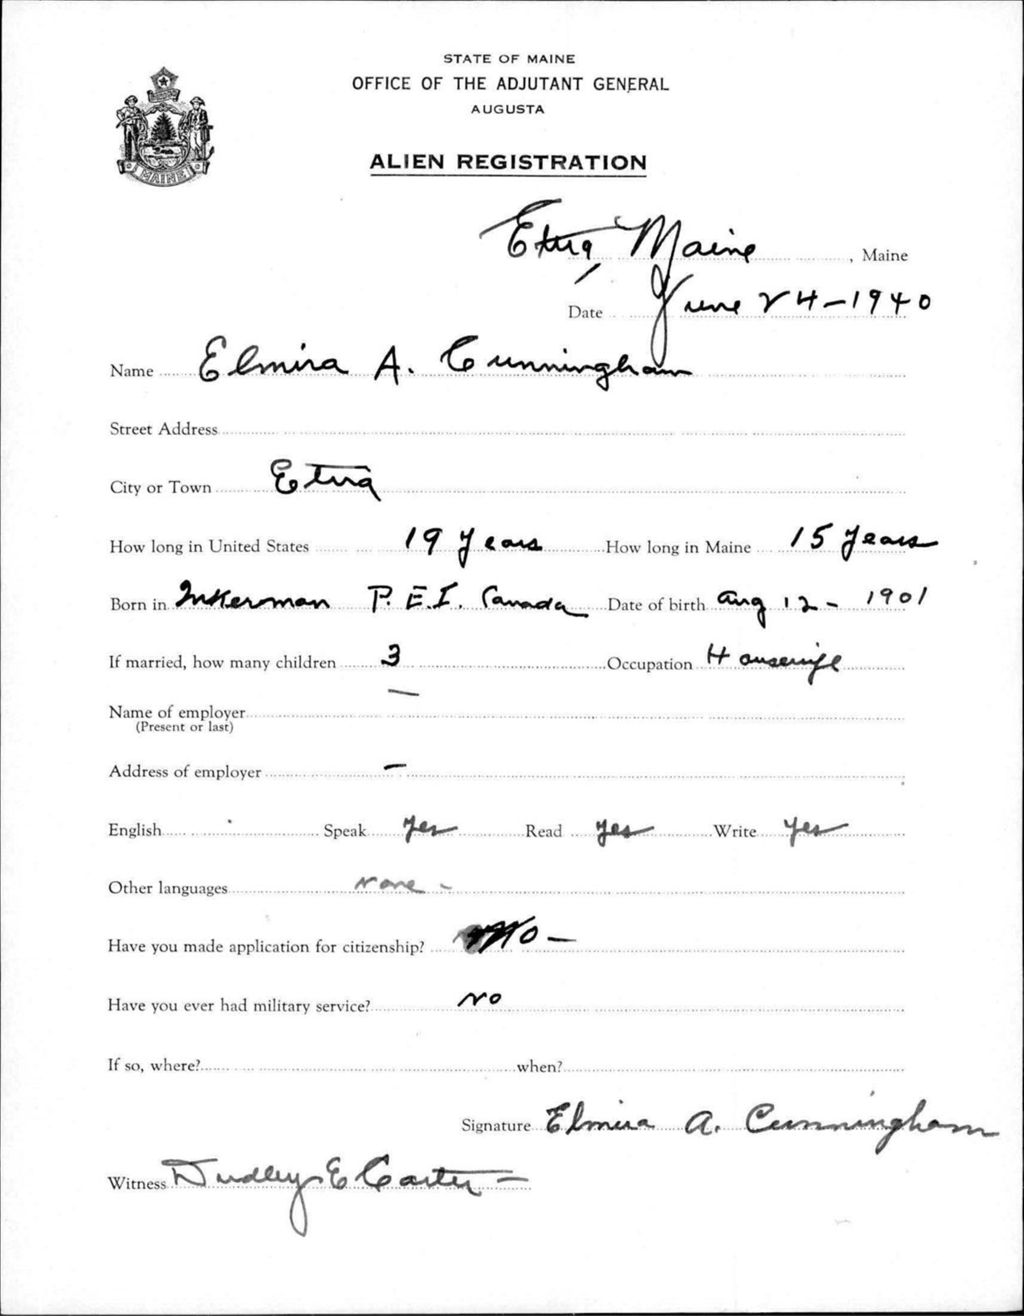 STATE OF MAINE
OFFICE OF THE ADJUTANT GENERAL
AUGUSTA
MAINE
ALIEN REGISTRATION
Etna, Maine, Maine
Date June 24-1940
Name Elmira A. Cunningham
Street Address
City or Town Etna
How long in United States 19 years How long in Maine 15 years
Born in Inkerman P.E.I. Canada Date of birth Aug 12 - 1901
If married, how many children 3 Occupation Housewife
Name of employer —
(Present or last)
Address of employer —
English Speak yes Read yes Write yes
Other languages none -
Have you made application for citizenship? No -
Have you ever had military service? no
If so, where? when?
Signature Elmira A. Cunningham
Witness Dudley E Carter -